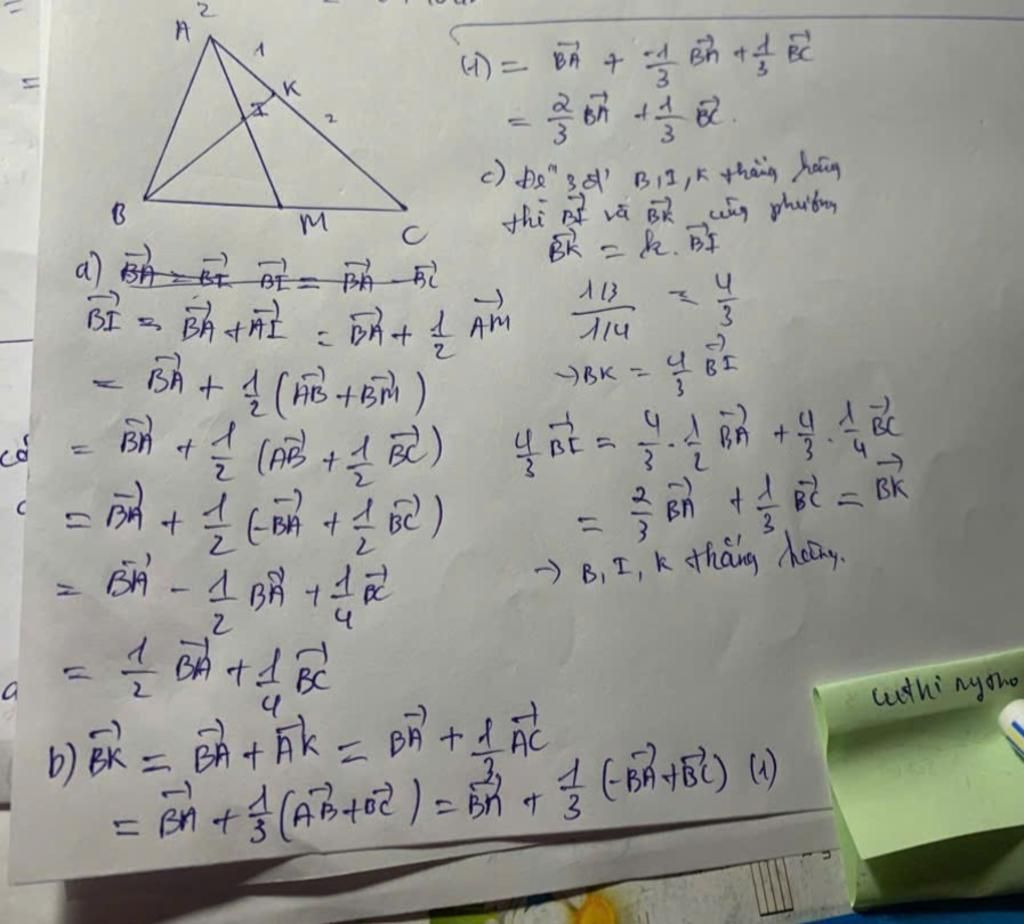 A
2
1
K
I
2
B
M
C
a) B͞A = B͞I B͞I = B͞A - B͞C
B͞I = B͞A + A͞I = B͞A + 1/2 A͞M
= B͞A + 1/2 (A͞B + B͞M)
= B͞A + 1/2 (A͞B + 1/2 B͞C)
= B͞A + 1/2 (-B͞A + 1/2 B͞C)
= B͞A - 1/2 B͞A + 1/4 B͞C
= 1/2 B͞A + 1/4 B͞C
b) B͞K = B͞A + A͞K = B͞A + 1/3 A͞C
= B͞A + 1/3 (A͞B + B͞C) = B͞A + 1/3 (-B͞A + B͞C) (1)
(1) = B͞A + -1/3 B͞A + 1/3 B͞C
= 2/3 B͞A + 1/3 B͞C.
c) Để 3 đ' B, I, K thẳng hàng
thì B͞I và B͞K cùng phương
B͞K = k. B͞I
1/3 / 1/4 = 4/3
→ BK = 4/3 B͞I
4/3 B͞I = 4/3 . 1/2 B͞A + 4/3 . 1/4 B͞C
= 2/3 B͞A + 1/3 B͞C = B͞K
→ B, I, K thẳng hàng.